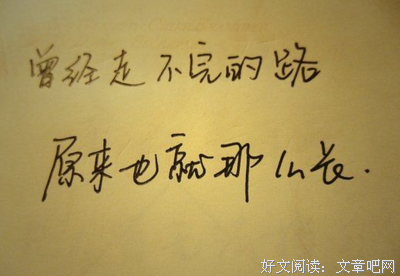 曾经走不完的路
原来也就那么长.
好文阅读：文章吧网